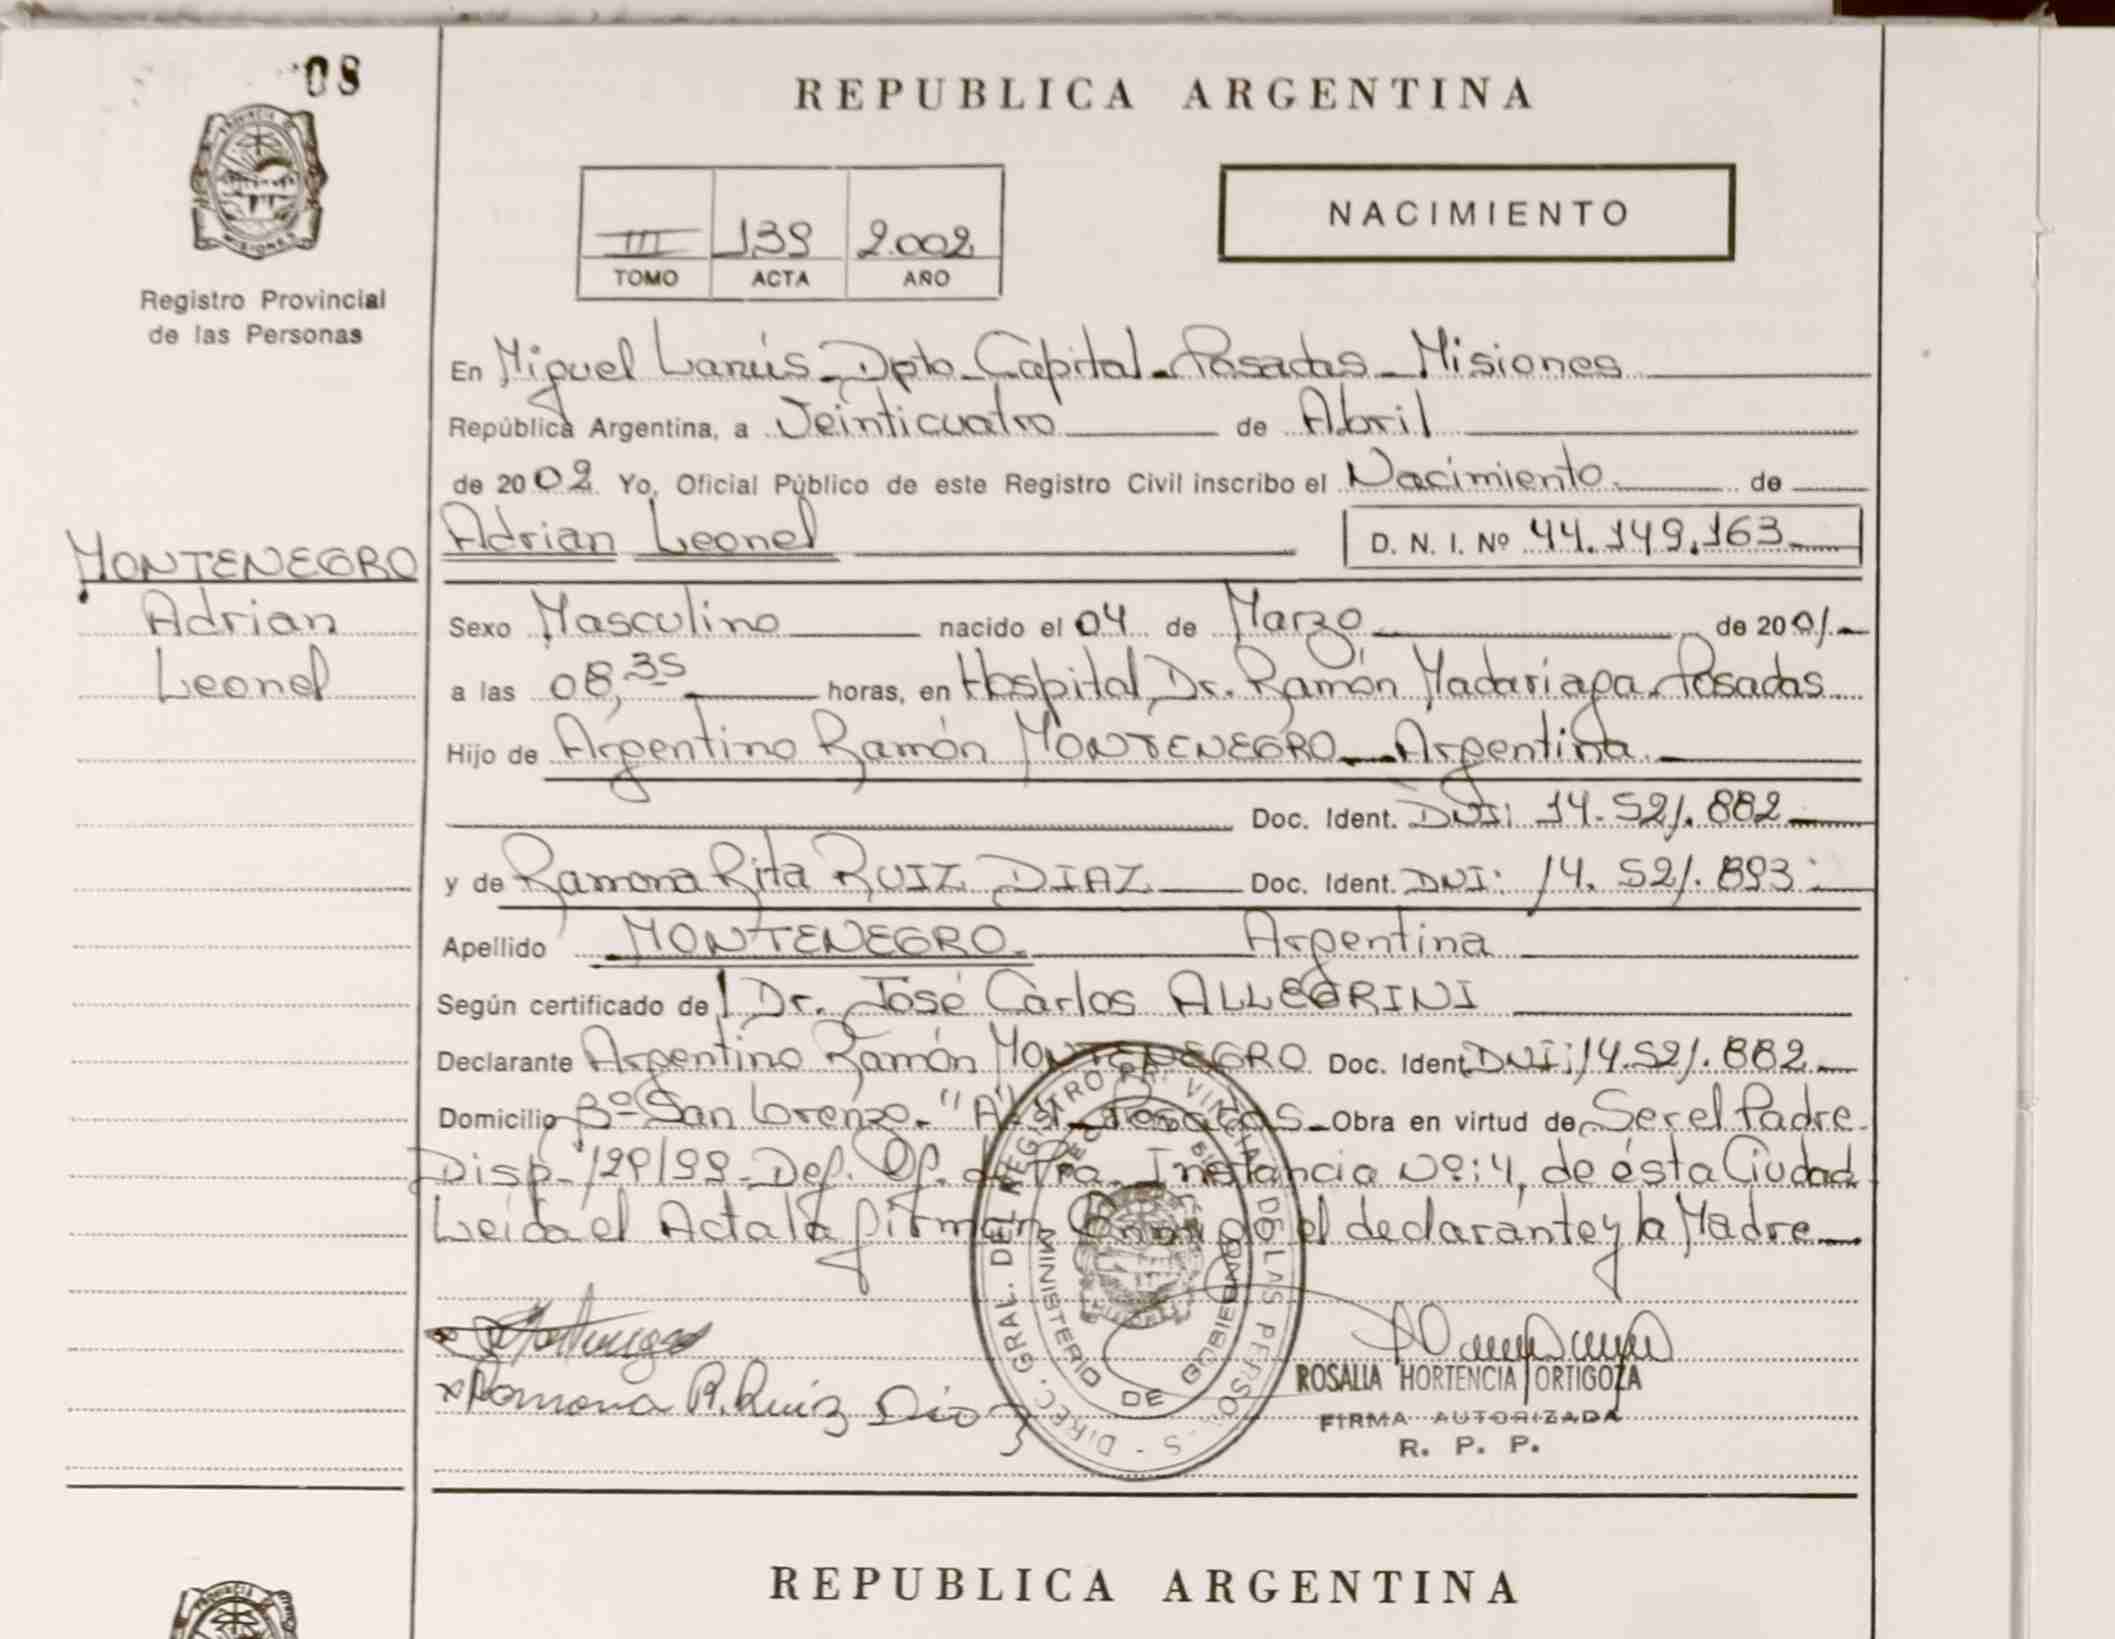 08
REPUBLICA ARGENTINA
PROVINCIA DE
MISIONES
Registro Provincial
de las Personas
NACIMIENTO
III 139 2.002
TOMO ACTA AÑO
En Miguel Lanús - Dpto - Capital - Posadas - Misiones
República Argentina, a Veinticuatro de Abril
de 2002 Yo, Oficial Público de este Registro Civil inscribo el Nacimiento de
Adrian Leonel D. N. I. Nº 44.149.163
MONTENEGRO
Adrian
Leonel
Sexo Masculino nacido el 04 de Marzo de 2001
a las 08,35 horas, en Hospital Dr. Ramón Madariaga - Posadas
Hijo de Argentino Ramón MONTENEGRO - Argentina
Doc. Ident. DNI: 14.521.882
y de Ramona Rita RUIZ DIAZ Doc. Ident. DNI: 14.521.893
Apellido MONTENEGRO Argentina
Según certificado del Dr. José Carlos ALLEGRINI
Declarante Argentino Ramón MONTENEGRO Doc. Ident. DNI: 14.521.882
Domicilio Bº San Lorenzo - "A" - Posadas - Obra en virtud de Ser el Padre
Disp. 129/99 - Def. Of. de Pra. Instancia Nº: 4, de ésta Ciudad
Leida el Acta la firman Conmigo el declarante y la Madre
DIREC. GRAL. DEL REGISTRO PROVINCIAL DE LAS PERSONAS
MINISTERIO DE GOBIERNO
Ramona R. Ruiz Diaz
ROSALIA HORTENCIA ORTIGOZA
FIRMA AUTORIZADA
R. P. P.
REPUBLICA ARGENTINA